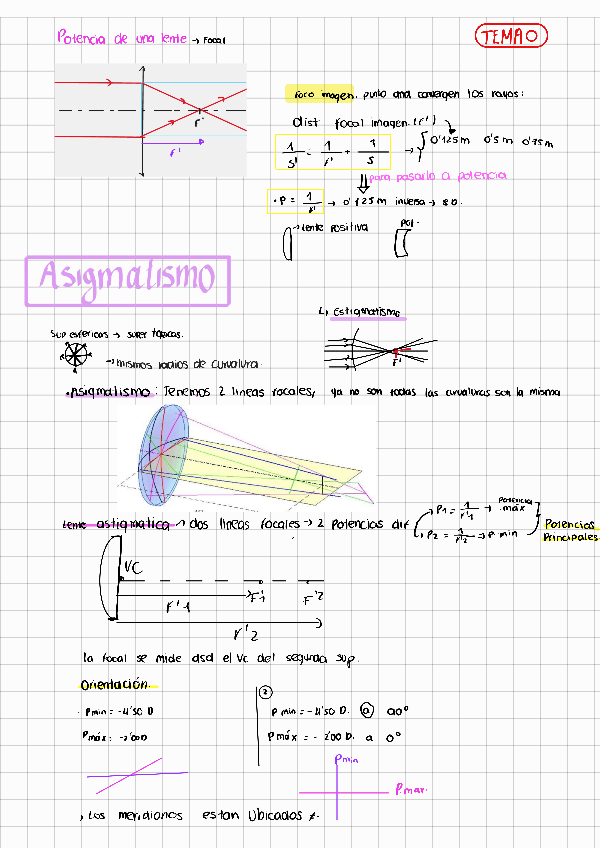 Potencia de una lente → Focal
TEMA 0
F'
F'
Foco imagen. punto dnd convergen los rayos:
dist focal imagen. (F')
1/S' = 1/F' + 1/S → 0'125m 0'5m 0'75m
para pasarlo a potencia
· P = 1/F' → 0'125m inversa → 8D.
→ Lente positiva
Asigmatismo
L, Estigmatismo
Sup esfericas →
→ mismos radios de curvatura.
F'
· Asigmatismo: Tenemos 2 lineas focales, ya no son todas las curvaturas son la misma
Lente astigmatica → dos lineas focales → 2 Potencias dif
P1 = 1/F'1 → Potencia máx
P2 = 1/F'2 → P min
Potencias
Principales
VC
F'1
F'2
F'1
F'2
la focal se mide dsd el VC del segunda sup.
Orientación.
· Pmin = -4'50 D
Pmáx: -2'00D
2
P min = -4'50 D. a 90°
P máx = - 2'00 D. a 0°
Pmin
P.max.
, Los meridianos estan Ubicados ≠.